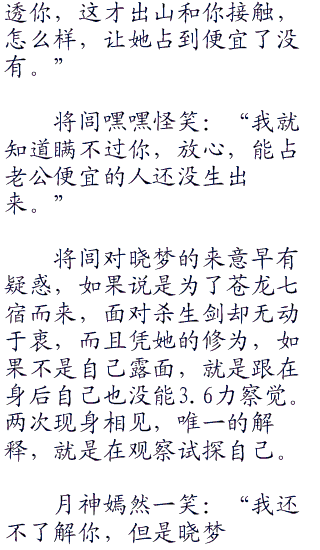 透你，这才出山和你接触，
怎么样，让她占到便宜了没
有。”
将闾嘿嘿怪笑：“我就
知道瞒不过你，放心，能占
老公便宜的人还没生出
来。”
将闾对晓梦的来意早有
疑惑，如果说是为了苍龙七
宿而来，面对杀生剑却无动
于衷，而且凭她的修为，如
果不是自己露面，就是跟在
身后自己也没能3.6力察觉。
两次现身相见，唯一的解
释，就是在观察试探自己。
月神嫣然一笑：“我还
不了解你，但是晓梦